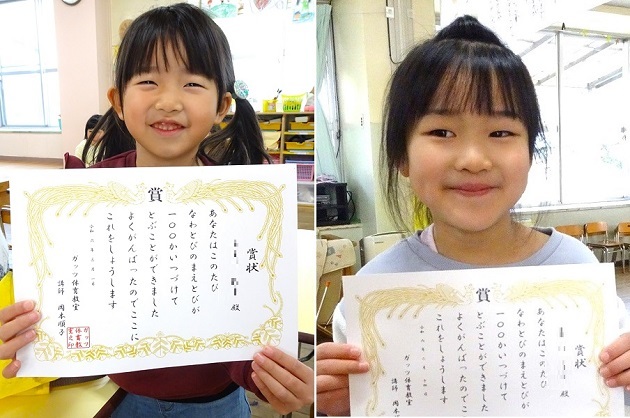 賞
賞状
殿
あなたはこのたび
なわとびのまえとびが
一〇〇かいつづけて
とぶことができました
よくがんばったのでここに
これをしょうします
ガッツ体育教室
講師 岡本順子
ガッツ
体育教
室之印
賞
賞状
殿
あなたはこのたび
なわとびのまえとびが
一〇〇かいつづけて
とぶことができました
よくがんばったのでこ
これをしょうします
ガッツ体育教室
講師 岡本